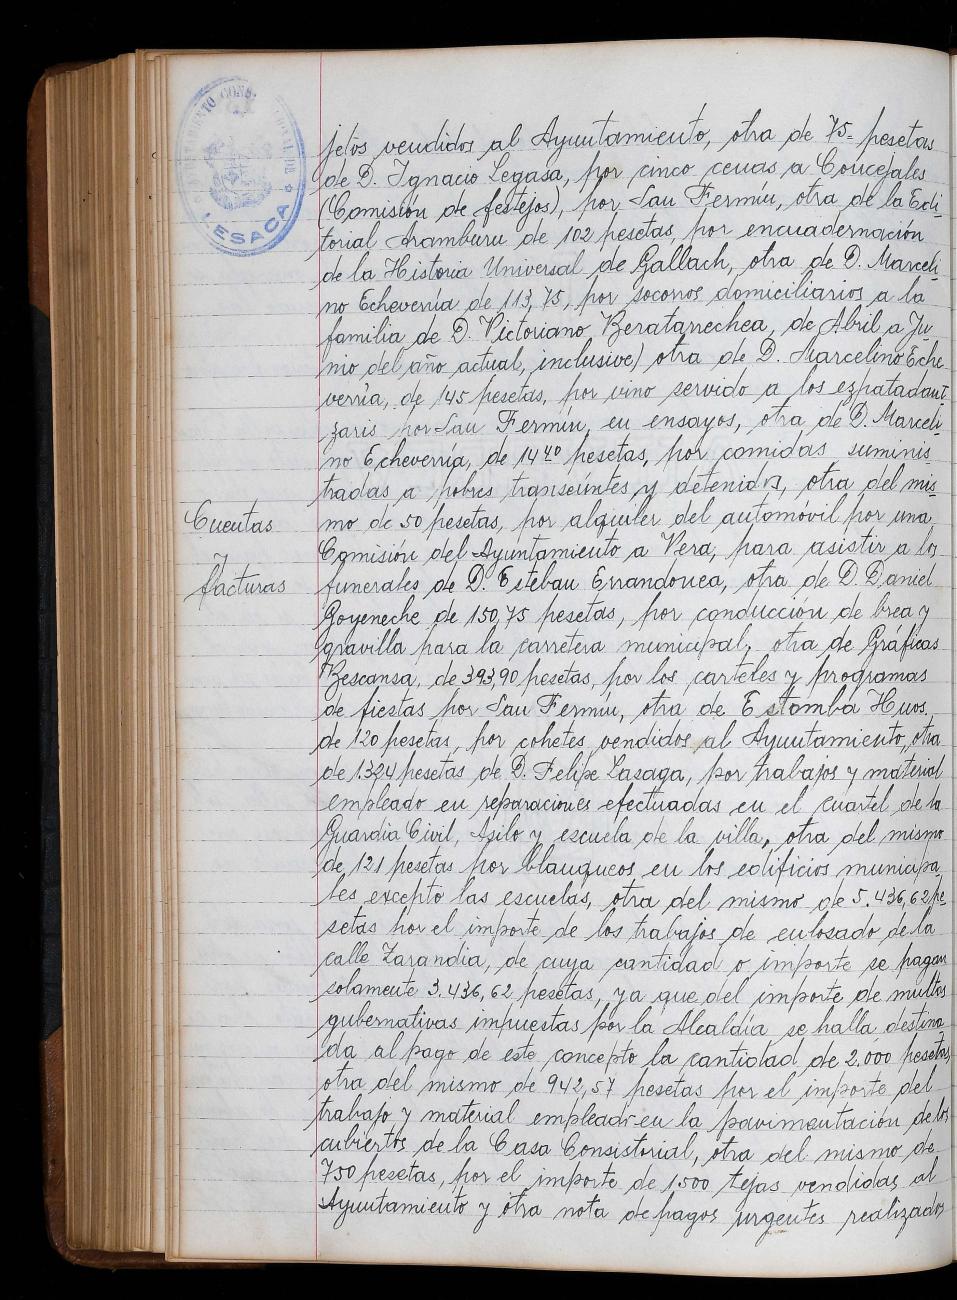 AYUNTAMIENTO CONSTITUCIONAL DE
LESACA
jetos vendidos al Ayuntamiento, otra de 75- pesetas
de D. Ignacio Legasa, por cinco cenas a Concejales
(Comisión de festejos), por San Fermín, otra de la Edi-
torial Aramburu de 102 pesetas, por encuadernación
de la Historia Universal de Gallach, otra de D. Marceli-
no Echeverría de 113,75, por socorros domiciliarios a la
familia de D. Victoriano Beratarrechea, de Abril a Ju-
nio del año actual, inclusive) otra de D. Marcelino Eche-
verría, de 145 pesetas, por vino servido a los ezpatadant-
zaris por San Fermín, en ensayos, otra de D. Marceli-
no Echeverria, de 14 40 pesetas, por comidas suminis-
tradas a pobres transeuntes y detenidos, otra del mis-
Cuentas
mo de 50 pesetas, por alquiler del automóvil por una
Comisión del Ayuntamiento a Vera, para asistir a los
y
facturas
funerales de D. Esteban Errandonea, otra de D. Daniel
Goyeneche de 150,75 pesetas, por conducción de brea y
gravilla para la carretera municipal, otra de Gráficas
Bescansa, de 393,90 pesetas, por los carteles y programas
de fiestas por San Fermín, otra de Estomba Hnos.
de 120 pesetas, por cohetes vendidos al Ayuntamiento, otra
de 1.324 pesetas de D. Felipe Lasaga, por trabajos y material
empleado en reparaciones efectuadas en el cuartel de la
Guardia Civil, Asilo y escuela de la villa, otra del mismo
de 121 pesetas por blanqueos en los edificios municipa-
les excepto las escuelas, otra del mismo de 5.436,62 pe-
setas por el importe de los trabajos de enlosado de la
calle Zarandia, de cuya cantidad o importe se pagan
solamente 3.436,62 pesetas, ya que del importe de multas
gubernativas impuestas por la Alcaldía se halla destina-
da al pago de este concepto la cantidad de 2.000 pesetas,
otra del mismo de 942,57 pesetas por el importe del
trabajo y material empleado en la pavimentación de los
cubiertos de la Casa Consistorial, otra del mismo de
750 pesetas, por el importe de 1.500 tejas vendidas al
Ayuntamiento y otra nota de pagos urgentes realizados